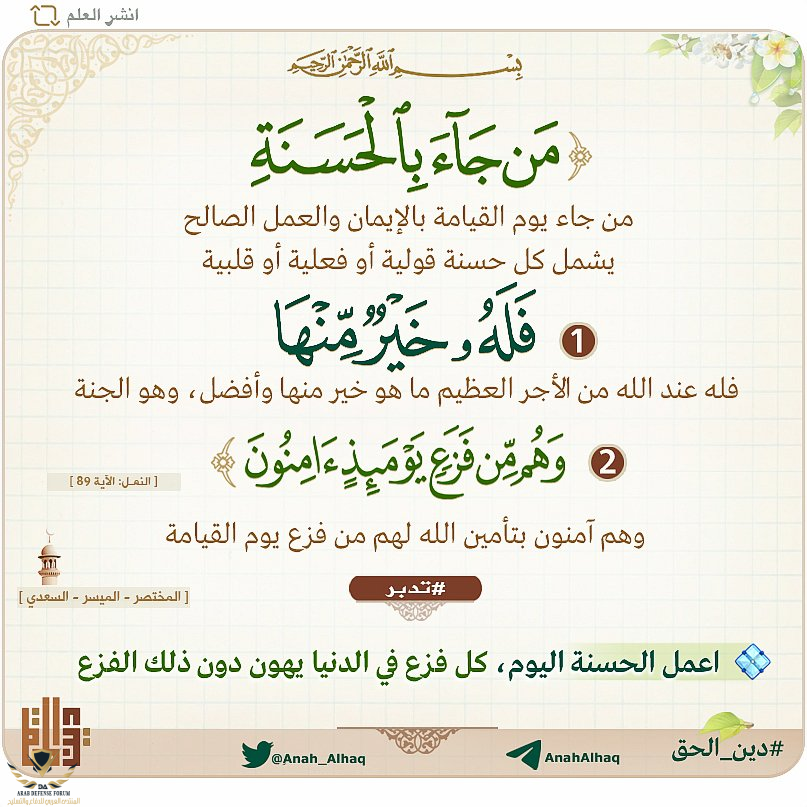 انشر العلم
بِسْمِ اللَّهِ الرَّحْمَٰنِ الرَّحِيمِ
﴿مَن جَآءَ بِٱلْحَسَنَةِ
من جاء يوم القيامة بالإيمان والعمل الصالح
يشمل كل حسنة قولية أو فعلية أو قلبية
1 فَلَهُۥ خَيْرٌ مِّنْهَا
فله عند الله من الأجر العظيم ما هو خير منها وأفضل، وهو الجنة
2 وَهُم مِّن فَزَعٍ يَوْمَئِذٍ ءَامِنُونَ﴾
[ النمل: الآية 89 ]
وهم آمنون بتأمين الله لهم من فزع يوم القيامة
[ المختصر - الميسر - السعدي ]
#تدبر
اعمل الحسنة اليوم، كل فزع في الدنيا يهون دون ذلك الفزع
#دين_الحق
AnahAlhaq
@Anah_Alhaq
DA
ARAB DEFENSE FORUM
المنتدى العربي للدفاع والتسليح